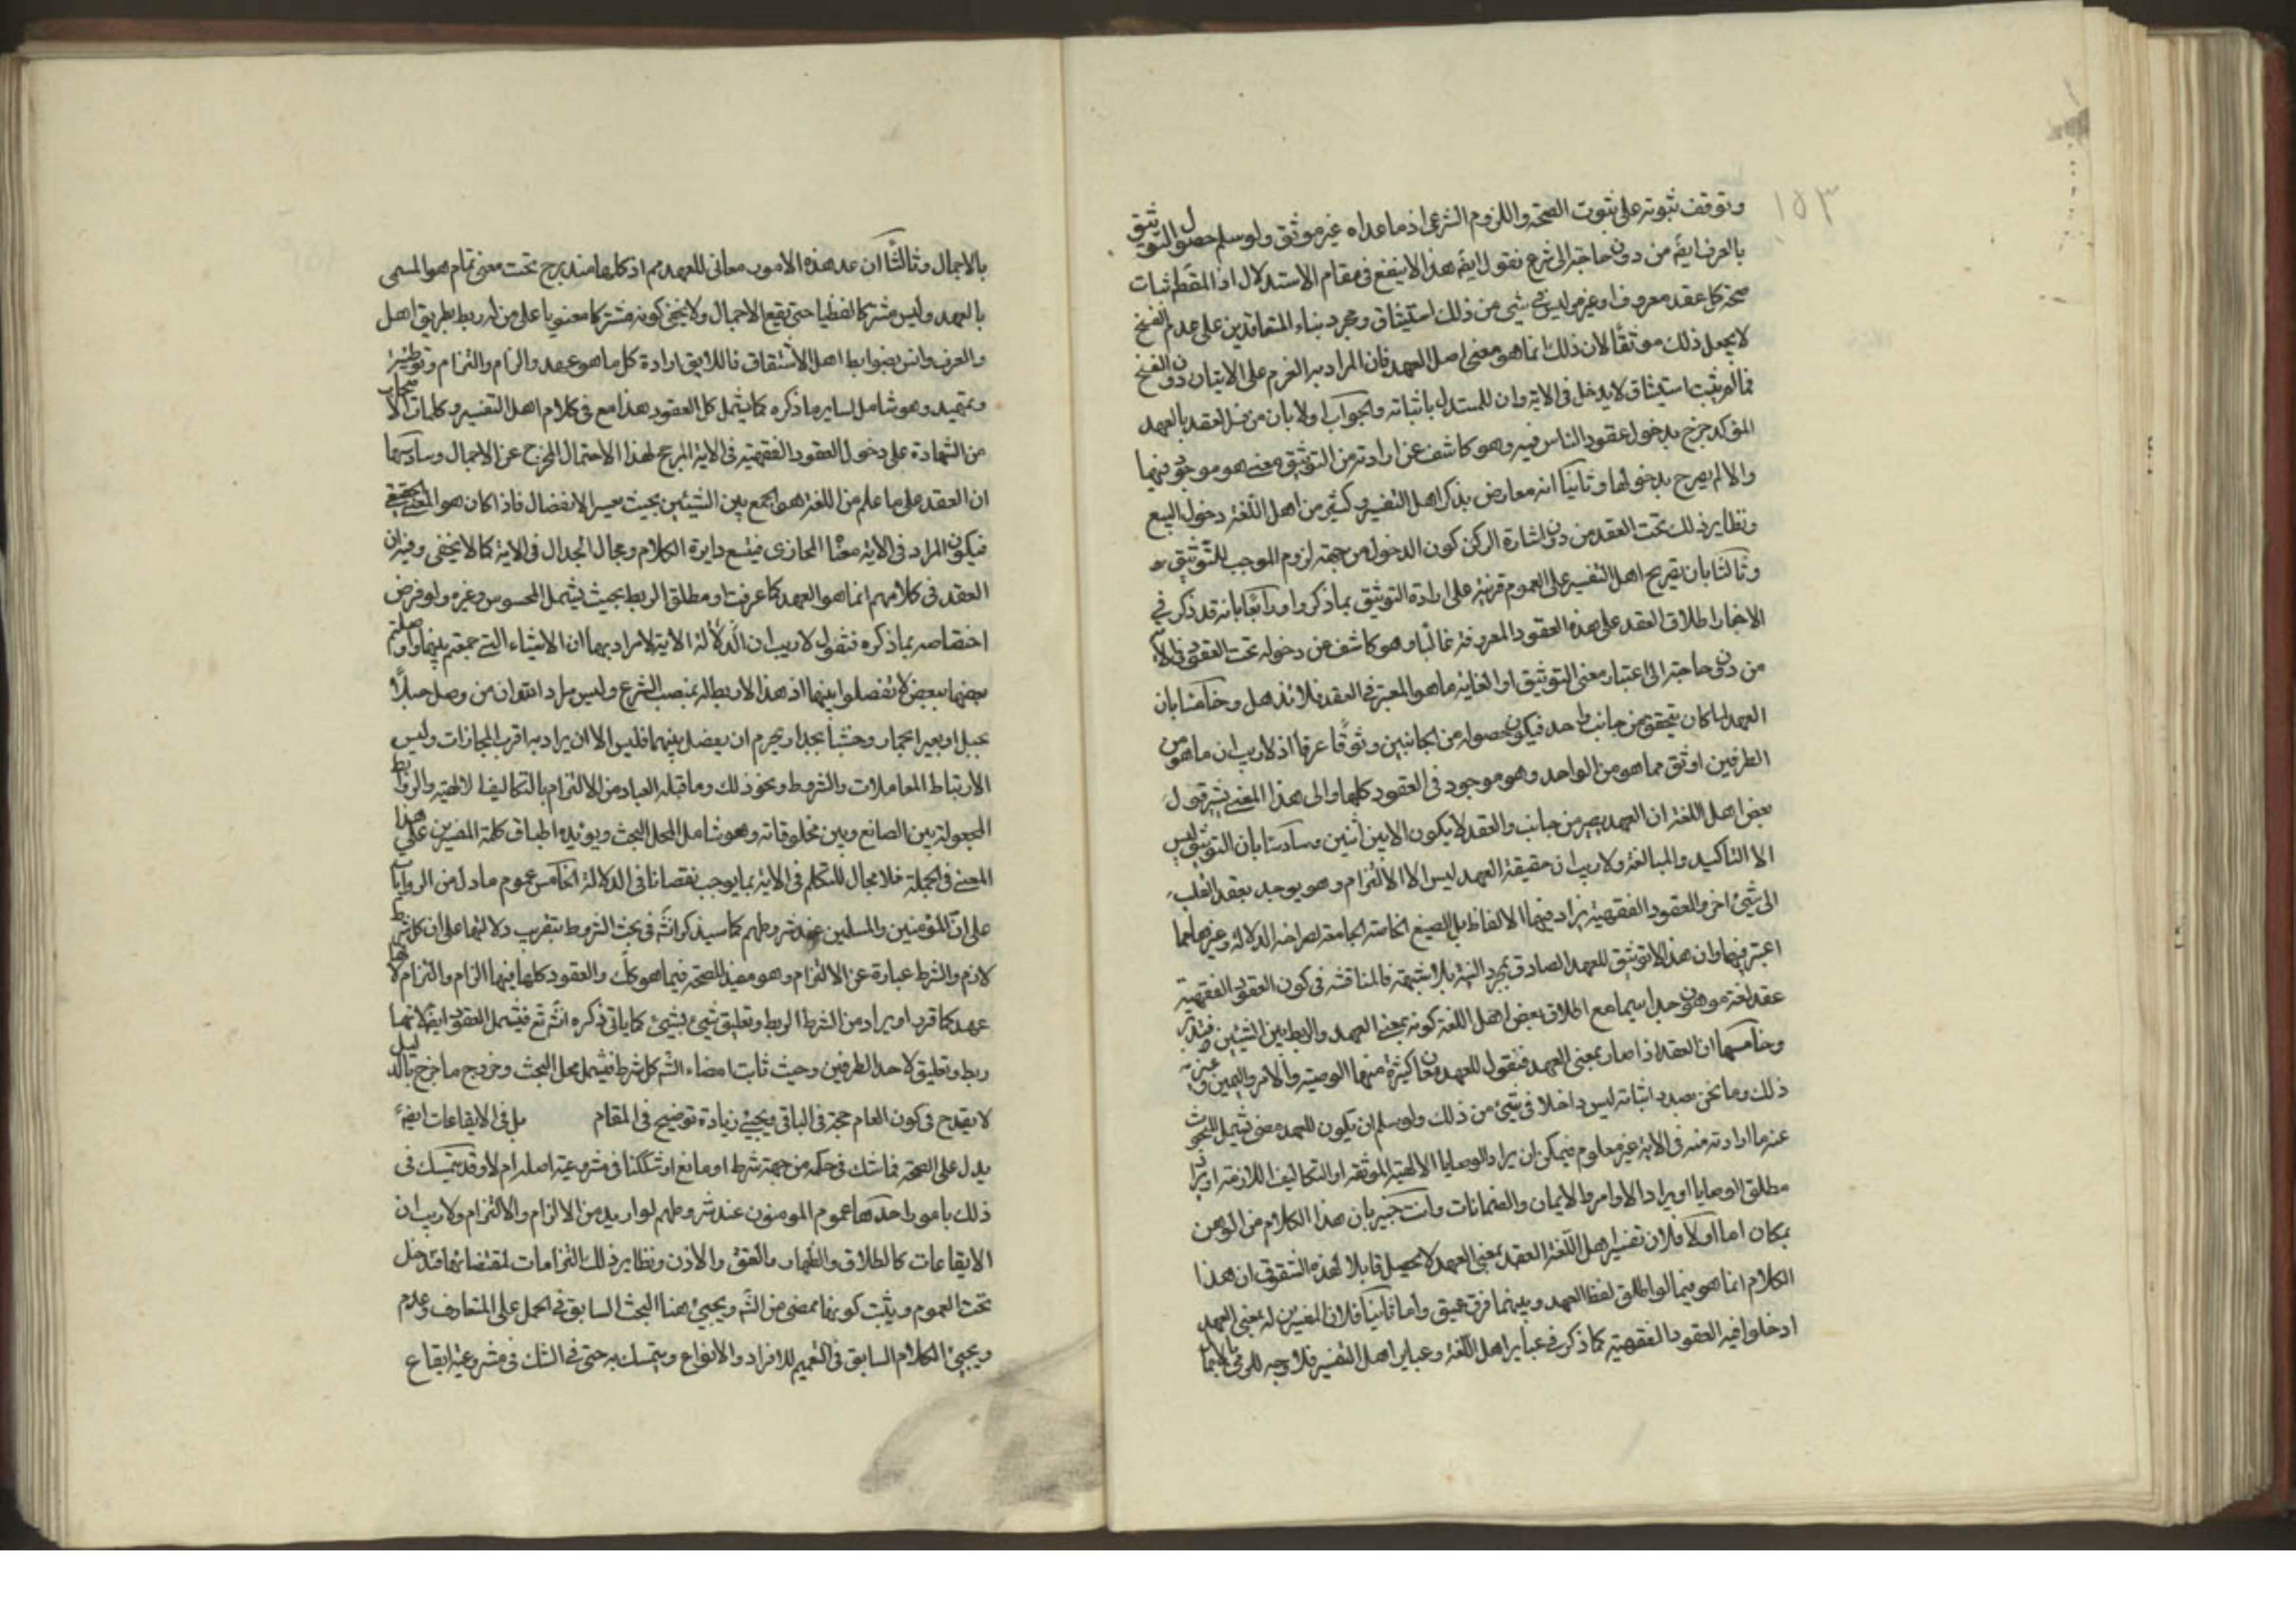 ١٥٣
وتوقف ثبوته على ثبوت الصحة واللزوم الشرعى اذ ما عداه غير موثق ولو سلم حصول التوثيق
بالعرف ايضً من دون حاجة الى شرع نقول ايضً هذا لا ينفع فى مقام الاستدلال اذ المقط ثبات
صحة كل عقد معروف او غيره وليس فى شئ من ذلك استيثاق ومجرد بناء المتعاقدين على عدم الفسخ
لا يجعل ذلك موثقًا لان ذلك انما هو معنى اصل العهد فان المراد به العزم على الاتيان دون الفسخ
فما لم يثبت استيثاق لا يدخل فى الاية وان للمستدل باثباته والجواب اولا بان من فسر العقد بالعهد
المؤكد صرح بدخول عقود الناس فيه وهو كاشف عن ارادته من التوثيق معنى هو موجود فيها
والا لم يصرح بدخولها وثانيًا انه معارض بذكر اهل التفسير وكثير من اهل اللغة دخول البيع
ونظاير ذلك تحت العقد من دون اشارة الى كون الدخول من جهة لزوم الموجب للتوثيق
وثالثا بان تصريح اهل التفسير على العموم قرينة على ارادة التوثيق بما ذكروا ورابعًا بانه قد ذكر فى
الاخبار اطلاق العقد على هذه العقود المعروفة غالبًا وهو كاشف عن دخوله تحت العقود فى الاية
من دون حاجة الى اعتبار معنى التوثيق او الغاية ما هو المعتبر فى العقد فلا تذهل وخامسًا بان
العهد لما كان يتحقق من جانب واحد فيكون حصوله من الجانبين وثوقًا عرفا اذ لا ريب ان ما هو من
الطرفين اوثق مما هو من الواحد وهو موجود فى العقود كلها والى هذا المعنى يشير قول
بعض اهل اللغة ان العهد يصير من جانب والعقد لا يكون الا بين اثنين وسادسًا بان التوثيق ليس
الا التاكيد والمبالغة ولا ريب ان حقيقة العهد ليس الا الالتزام وهو يوجد بعقد القلب
الى شئ اخر والعقود الفقهية يزاد فيها الالفاظ بل الصيغ الخاصة الجامعة لصراحة الدلالة وغيرها مما
اعتبر فيها وان هذا لا توثيق للعهد الصادق بمجرد النية بلا شبهة فالمناقشة فى كون العقود الفقهية
عقد لغة موهون جدا سيما مع اطلاق بعض اهل اللغة كونه بمعنى العهد والربط بين الشيئين فتدبر
وخامسها ان العقد اذا صار بمعنى العهد فنقول للعهد معان كثيرة منها الوصية والامر واليمين وغير
ذلك وما نحن بصدد اثباته ليس داخلا فى شئ من ذلك ولو سلم ان يكون للعهد معنى يشمل المبحوث
عنه ما ارادته منه فى الاية غير معلوم فيمكن ان يراد الوصايا الالهية الموثقة او التكاليف اللازمة او يراد
مطلق الوصايا او يراد الاوامر والايمان والضمانات وانت خبير بان هذا الكلام من الوهن
بمكان اما اولا فلان تفسير اهل اللغة العقد بمعنى العهد لا يحصل قابلا لهذه الشقوق ان هذا
الكلام انما هو فيما لو اطلق لفظ العهد وبينهما فرق عميق واما ثانيًا فلان المفسرين له بمعنى العهد
ادخلوا فيه العقود الفقهية كما ذكر فى عباير اهل اللغة وعباير اهل التفسير فلا وجه للرمى بالاجمال
بالاجمال وثالثًا ان عد هذه الامور معانى للعهد مم اذ كلها مندرج تحت معنى تمام هو المسمى
بالعهد وليس مشتركا لفظيا حتى يقع الاجمال ولا يخفى كونه مشتركا معنويا على من له ربط بطريق اهل
والعرف وانس بضوابط اهل الاشتقاق فاللايق ارادة كل ما هو عهد والزام والتزام وتوطئة
وتمهيد وهو شامل لساير ما ذكره كما يشمل كل العقود هذا مع فى كلام اهل التفسير وكلمات الاصحاب
من الشهادة على دخول العقود الفقهية فى الاية المرجح لهذا الاحتمال المخرج عن الاجمال وسادسها
ان العقد على ما علم من اللغة هو الجمع بين الشيئين بحيث يعسر الانفصال فاذا كان هو المعنى الحقيقى
فيكون المراد فى الاية معنًا المجازى فيتسع دايرة الكلام ومجال الجدال فى الاية كما لا يخفى وفيه ان
العقد فى كلامهم انما هو العهد كما عرفت او مطلق الربط بحيث يشمل المحسوس وغيره ولو فرض
اختصاصه بما ذكره فنقول لا ريب ان الدلالة الاية لا مراد بها ان الاشياء التى جمعتم بينها واوصلتم
بعضها ببعض لا تفصلوا بينها اذ هذا لا ربط له بمنصب الشرع وليس مراد اذ هو ان من وصل حبلًا
بحبل او بعيرا بحمار وخشبا بجدار يحرم ان يفصل بينهما فليس الا ان يراد به اقرب المجازات وليس
الا ارتباط المعاملات والشروط ونحو ذلك وما قبله العباد من الالتزام بالتكاليف الالهية والروابط
المجعولة بين الصانع وبين مخلوقاته وهو شامل لمحل البحث ويؤيده اطباق كلمة المفسرين على هذا
المعنى فى الجملة فلا مجال للتكلم فى الاية بما يوجب نقصانا فى الدلالة الخامس عموم ما دل من الروايات
على ان المؤمنين والمسلمين عند شروطهم كما سيذكر انشً فى بحث الشروط بتقريب دلالتها على ان كل شرط
لازم والشرط عبارة عن الالتزام وهو مفيد للصحة فيما هو كك والعقود كلها فيها الزام والتزام لانها
عهد كما قرر او يراد من الشرط الربط وتعليق شئ بشئ كما ياتى ذكره انشً تع فيشمل العقود ايضً لانها
ربط وتعليق لاحد الطرفين وحيث ثابت امضاء الشً كل شرط فيشمل محل البحث وخروج ما خرج بالدليل
لا يقدح فى كون العام حجة فى الباقى ويجيئ زيادة توضيح فى المقام بل فى الايقاعات ايضً
يدل على الصحة فما شك فى حكمه من جهة شرط او مانع او شككنا فى مشروعية اصله ام لا وقد يتمسك فى
ذلك بامور احدها عموم المومنون عند شروطهم لو اريد من الالزام والالتزام ولا ريب ان
الايقاعات كالطلاق والظهار والعتق والاذن ونظاير ذلك التزامات لمقتضياتها فتدخل
تحت العموم ويثبت كونها ممضى من الشً ويجيئ هنا البحث السابق فى الحمل على المتعارف وعدم
ويجيئ الكلام السابق فى التعميم للافراد والانواع ويتمسك به حتى فى الشك فى مشروعية ايقاع